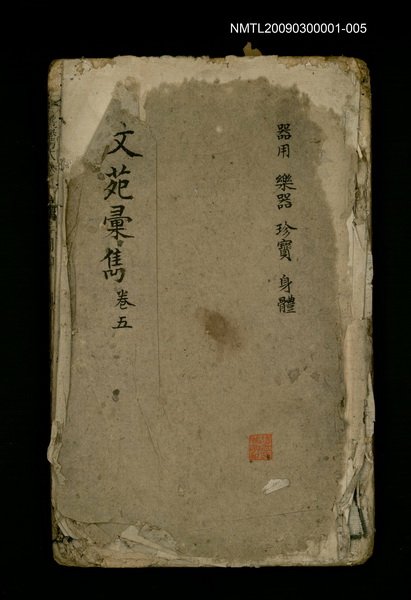 NMTL20090300001-005
器用 樂器 珍寶 身體
文苑彙雋 卷五